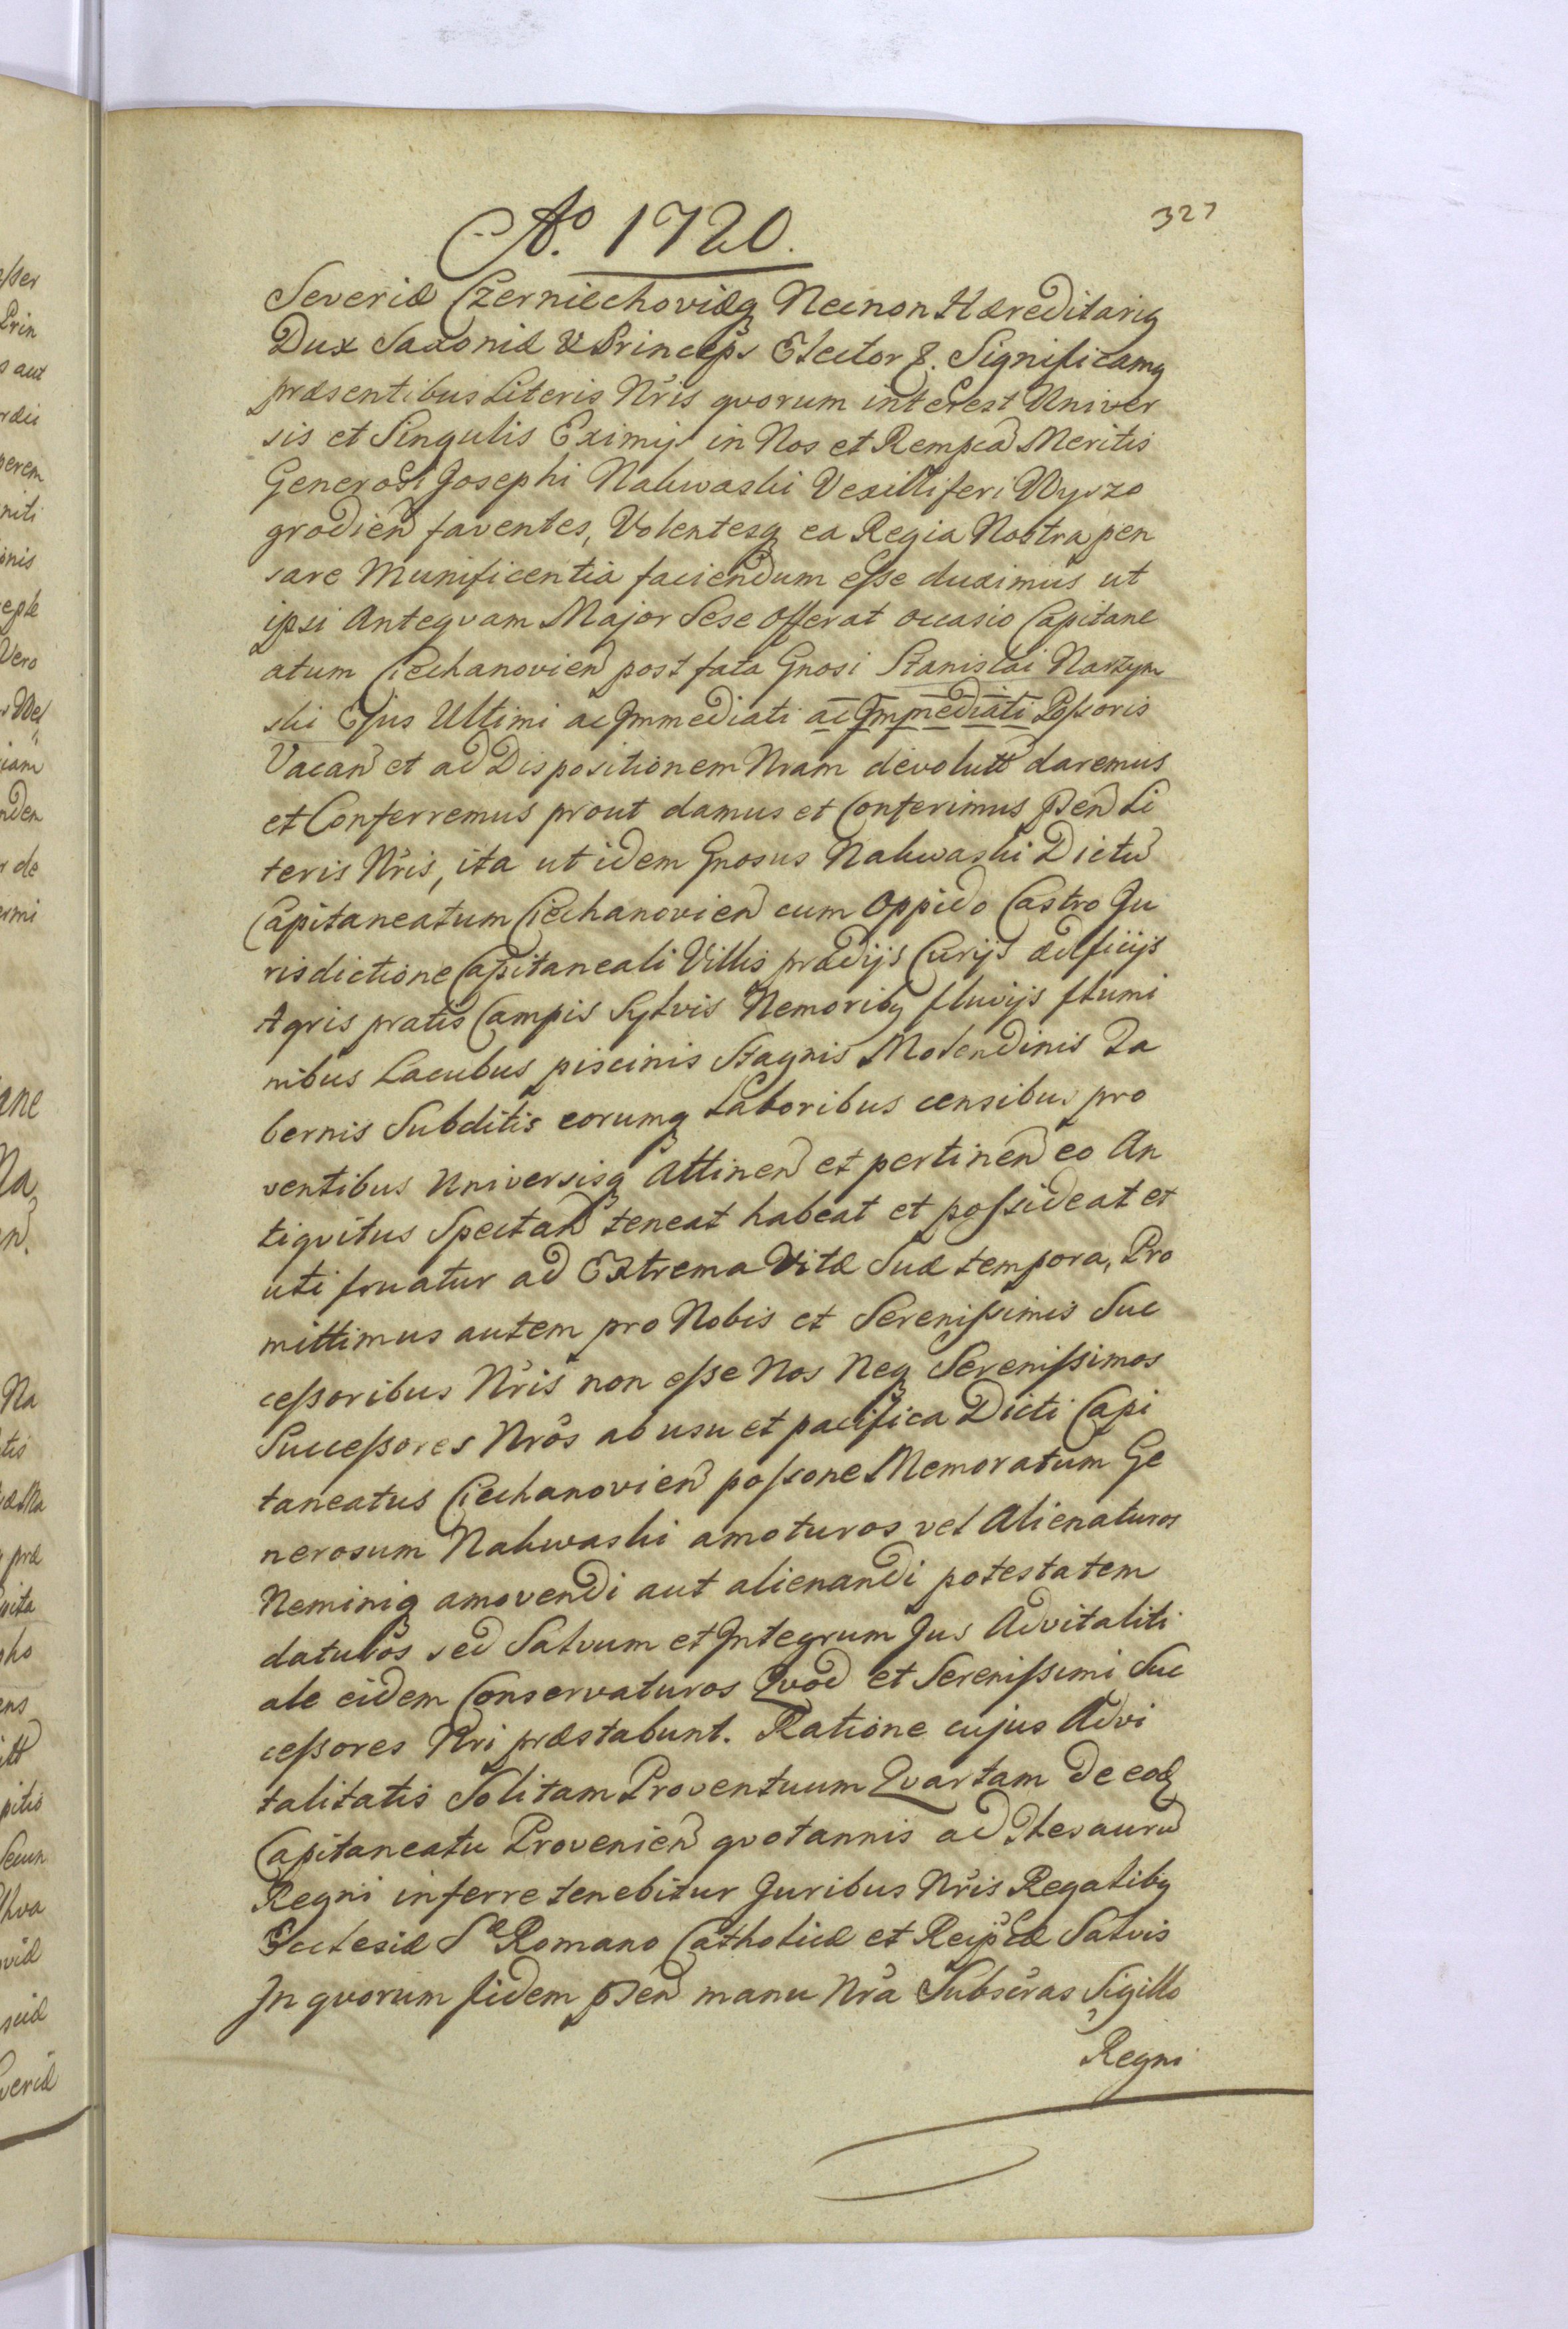 327
Aº. 1720.
Severiæ Czerniechoviæq; Necnon Hæreditarig
Dux Saxoniæ & Princeps Elector &. Significamg
præsentibus Literis Nris qvorum interest Univer
sis et Singulis Eximijs in Nos et Rempcã Meritis
Generosi Josephi Nakwaski Vexilliferi Wyszo
grodien faventes, Volentesq; ea Regia Nostra pen
sare Munificentia faciendum eſse duximus ut
ipsi Anteqvam Major Sese offerat occasio Capitane
atum Ciechanovien post fata Gnosi Stanislai Narzym
ski Ejus Ultimi ac Immediati ac Immediati Poſsoris
Vacan et ad Dispositionem Nram devolutt daremus
et Conferremus prout damus et Conferimus pſen Li
teris Nris, ita ut idem Gnosus Nakwaski Dictũ
Capitaneatum Ciechanovien cum Oppido Castro Ju
risdictione Capitaneali Villis prædijs Curijs ædificijs
Agris pratis Campis Sylvis Nemoribg fluvijs flumi
nibus Lacubus piscinis Stagnis Molendinis Ta
bernis Subditis eorumq; Laboribus censibus pro
ventibus Universisq; Attinen et pertinen eo An
tiqvitus Spectan teneat habeat et poſsideat et
uti fruatur ad Extrema Vitæ Suæ tempora, Pro
mittimus autem pro Nobis et Sereniſsimis Suc
ceſsoribus Nris non eſse Nos Neq; Sereniſsimos
Succeſsores Nros ab usu et pacifica Dicti Capi
taneatus Ciechanovien poſsone Memoratum Ge
nerosum Nakwaski amoturos vel Alienaturos
Neminiq; amovendi aut alienandi potestatem
daturos sed Salvum et Integrum Jus Advitaliti
ale eidem Conservaturos Qvod et Sereniſsimi Suc
ceſsores Nri præstabunt. Ratione cujus Advi
talitatis Solitam Proventuum Qvartam de eod
Capitaneatu Provenien qvotannis ad Thesaurũ
Regni inferre tenebitur Juribus Nris Regalibg
Ecclesiæ Sæ Romano Catholicæ et Reipcæ Salvis
In qvorum fidem pſen manu Nra Subscras Sigillo
Regni